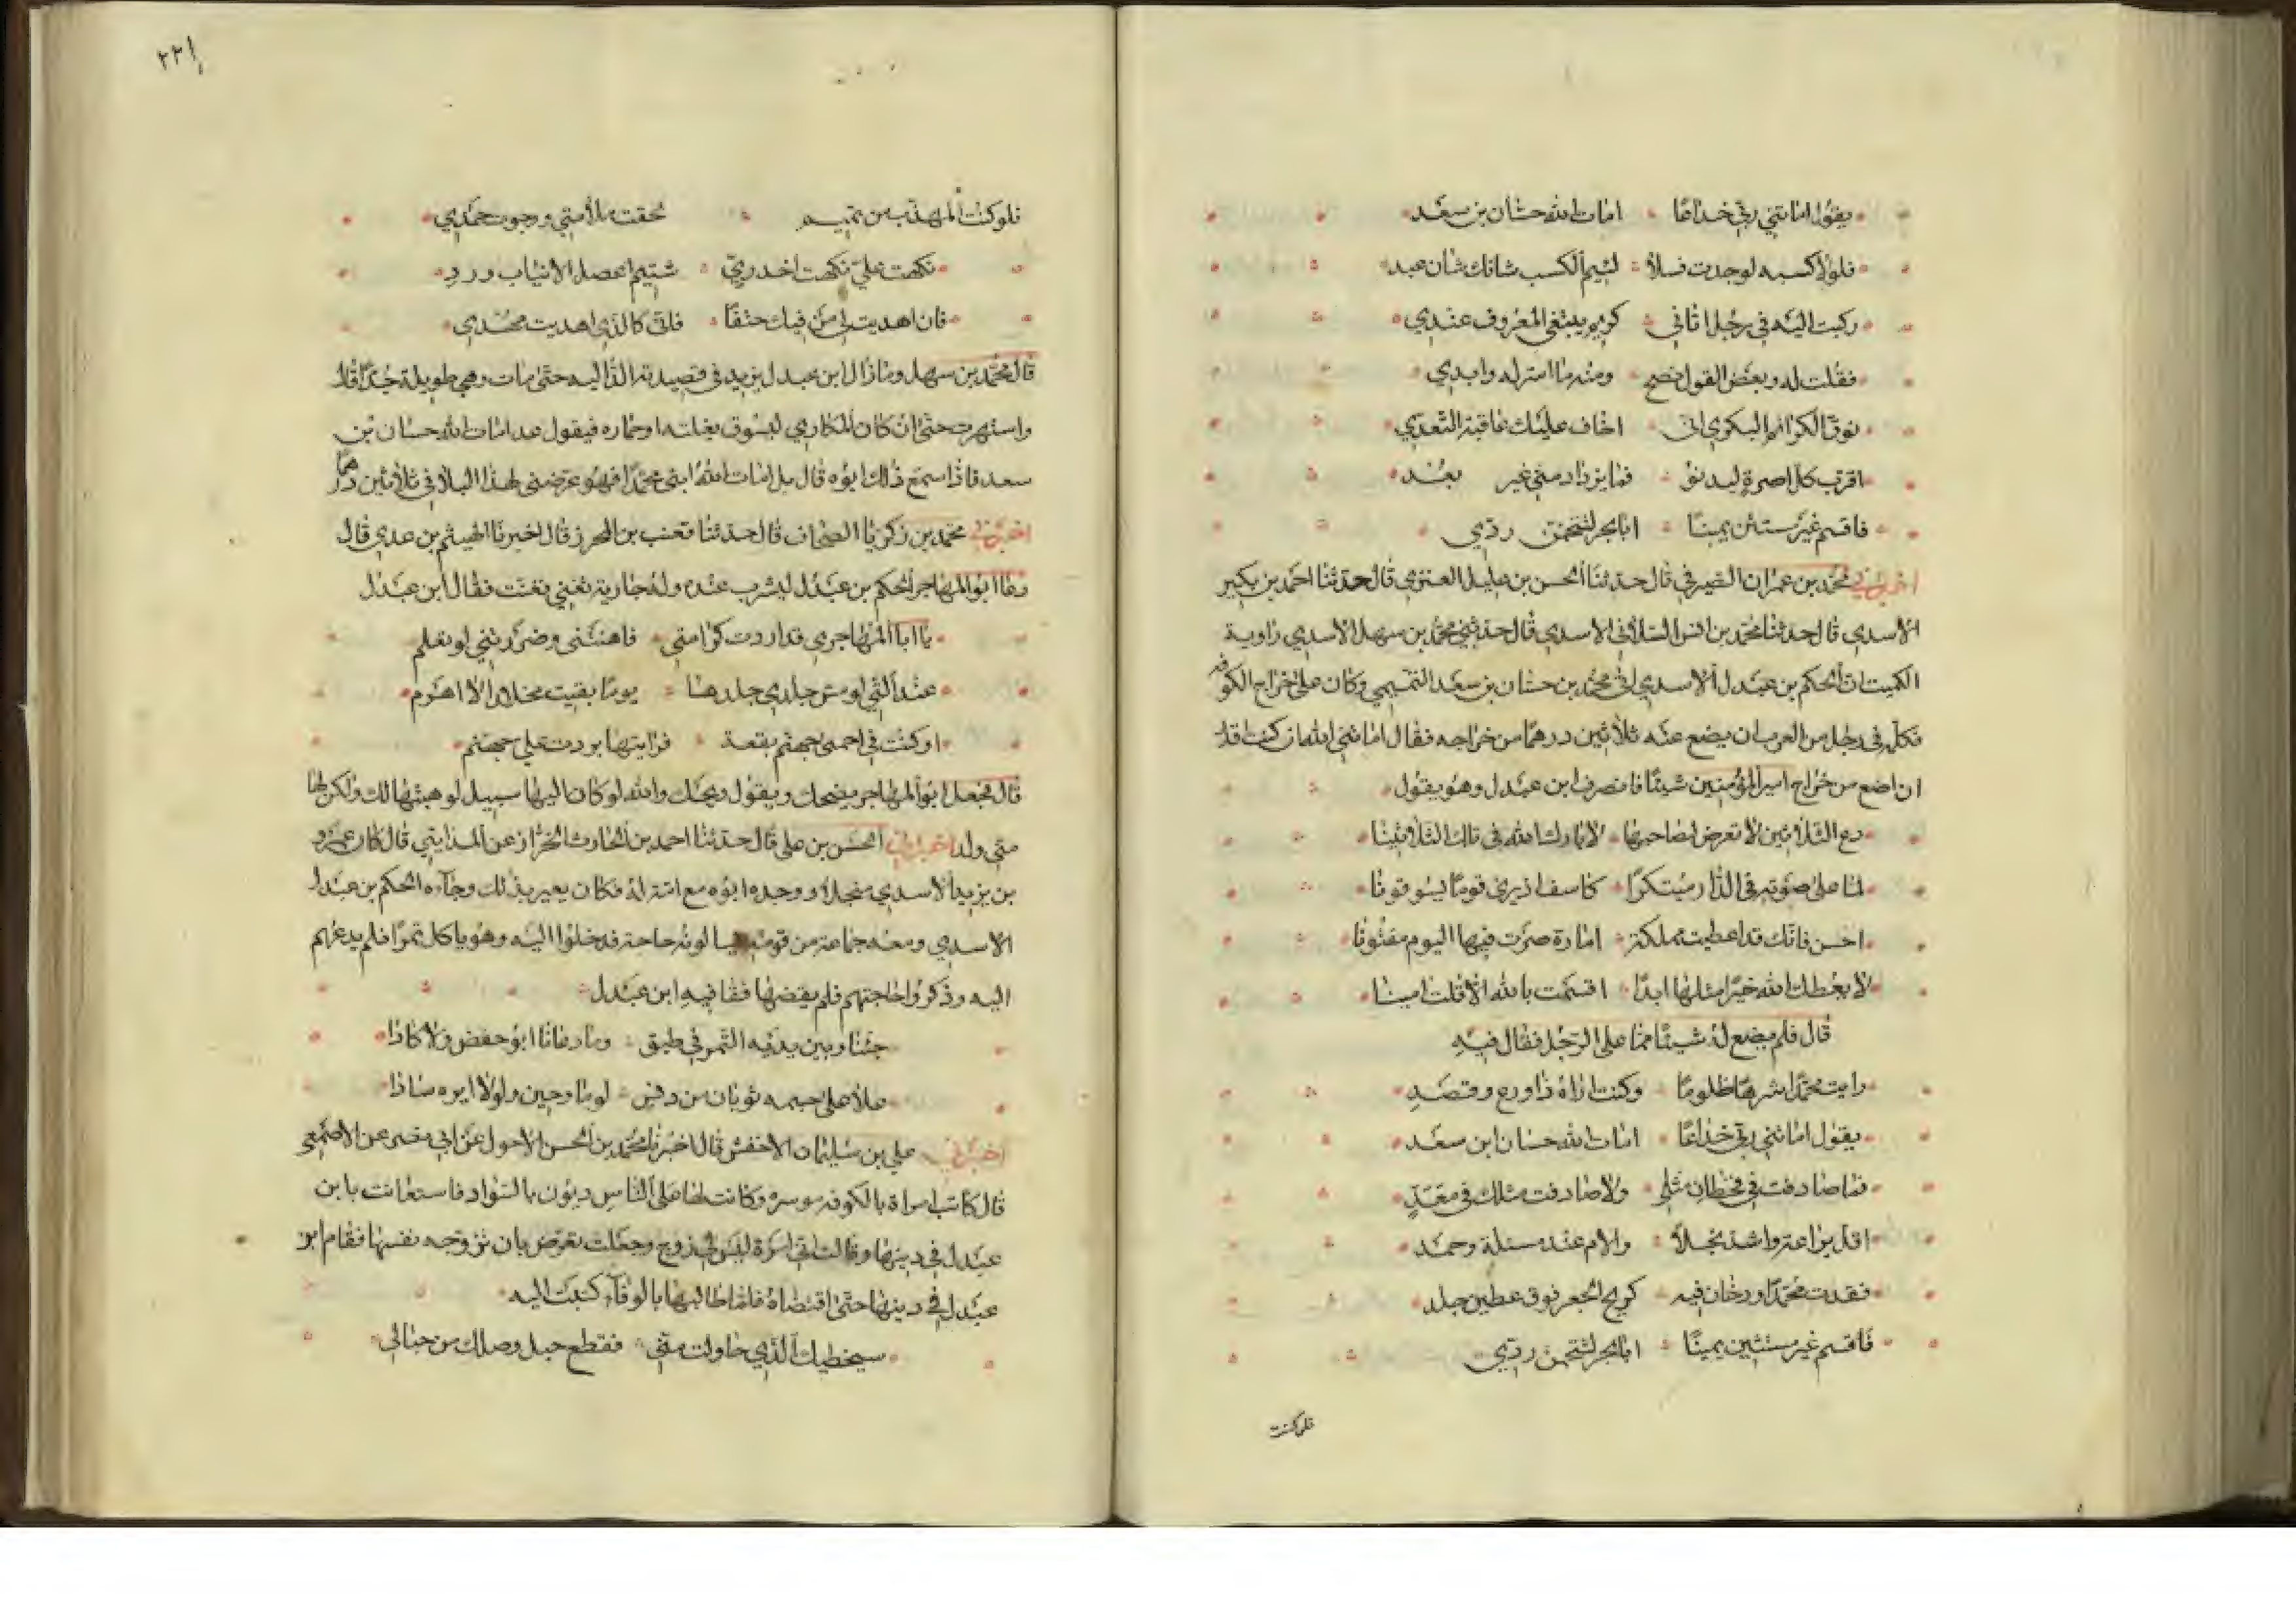 يقول اماتني ربي خداعا اماتالله حسان بن سعد
فلولا كسبه لوجدت فسلا لئيم الكسب شانك شان عبد
ركبت اليه في رجل اتاني كريم يبتغي المعروف عندي
فقلت له وبعض القول نصح ومنه ما اسر له وابدي
توق الكرائم البكري اني اخاف عليك عاقبة التعدي
اقرب كل اصرة ليدنو فما يزداد مني غير بعد
فاقسم غير مستثن يمينا ابا بجر لتتخمن ردي
اخبرني محمد بن عمران الصيرفي قال حدثنا الحسن بن عليل العنزي قال حدثنا احمد بن بكير
الاسدي قال حدثنا محمد بن انس السلامي الاسدي قال حدثني محمد بن سهل الاسدي راوية
الكميت ان الحكم بن عبدل الاسدي اتى محمد بن حسان بن سعد التميمي وكان على خراج الكوفه
فكلمه في رجل من العرب ان يضع عنه ثلاثين درهما من خراجه فقال اماتني الله ان كنت اقدر
ان اضع من خراج امير المؤمنين شيئا فانصرف ابن عبدل وهو يقول
دع الثلاثين لا تعرض لصاحبها لا بارك الله في تلك الثلاثينا
لما على صوته في الدار مبتكرا كاسف اذ يرى قوما يسوقونا
احسن فانك قد اعطيت مملكة امارة صرت فيها اليوم مفتونا
لا يعطك الله خيرا مثلها ابدا اقسمت بالله الا قلت امينا
قال فلم يضع له شيئا مما على الرجل فقال فيه
رايت محمدا شرها ظلوما وكنت اراه ذا ورع وقصد
يقول اماتني ربي خداعا امات الله حسان ابن سعد
فما صادفت في قحطان مثلي ولا صادفت مثلك في معد
اقل براعة واشد بخلا والام عند مسئلة وحمد
فقدت محمدا ودخان فيه كريح الجعر فوق عطين جلد
فاقسم غير مستثنين يمينا ابا بجر لتتخمن ردي
فلو كنت
٢٢١
فلو كنت المهذب من تميم لخفت ملامتي ورجوت حمدي
نكهت علي نكهت اخدري شتيم اعصل الانياب ورد
فان اهديت لي من فيك حتفا فاني كالذي اهديت محدي
قال محمد بن سهل وما زال ابن عبدل يزيد في قصيدته الداليه حتى مات وهي طويلة جدا قال
واشتهرت حتى ان كان المكاري ليسوق بغلته او حماره فيقول عد امات الله حسان بن
سعد فاذا سمع ذلك ابوه قال بل امات الله ابني محمدا فهو عرضني لهذا البلا في ثلاثين درهما
اخبرني محمد بن زكريا الصحاف قال حدثنا قعنب بن المحرز قال اخبرنا الهيثم بن عدي قال
دعا ابو المهاجر الحكم بن عبدل ليشرب عنده وله جارية تغني فغنت فقال ابن عبدل
يا ابا المهاجر قد اردت كرامتي فاهنتني وضررتني لو تعلم
عند التي لو مس جلدي جلدها يوما بقيت مخلدا لا اهرم
او كنت في احمى جهنم بقعة فرايتها بردت علي جهنم
قال فجعل ابو المهاجر يضحك ويقول ويحك والله لو كان اليها سبيل لوهبتها لك ولكن لها
مني ولد اخبرني الحسن بن علي قال حدثنا احمد بن الحارث الخراز عن المدايني قال كان عمرو
بن يزيد الاسدي مبخلا ووجده ابوه مع امة له فكان يعير بذلك وجاءه الحكم بن عبدل
الاسدي ومعه جماعة من قومه يسالونه حاجة فدخلوا اليه وهو ياكل تمرا فلم يدعهم
اليه وذكروا حاجتهم فلم يقضها فقا فيه ابن عبدل
جئنا وبين يديه التمر في طبق وما دعانا ابو حفص ولا كادا
علا على جسمه ثوبان من دنس لوم وجبن ولولا ايره سادا
اخبرني علي بن سليمان الاخفش قال اخبرنا محمد بن الحسن الاحول عن ابي نصر عن الاصمعي
قال كانت امراة بالكوفه موسره وكانت لها على الناس ديون بالسواد فاستعانت بابن
عبدل في دينها وقالت اني امراة ليس لي زوج وجعلت تعرض بان تزوجه نفسها فقام ابن
عبدل في دينها حتى اقتضاه فلما طالبها بالوفاء كتبت اليه
سيخطيك الذي حاولت مني فقطع حبل وصلك من حبالي